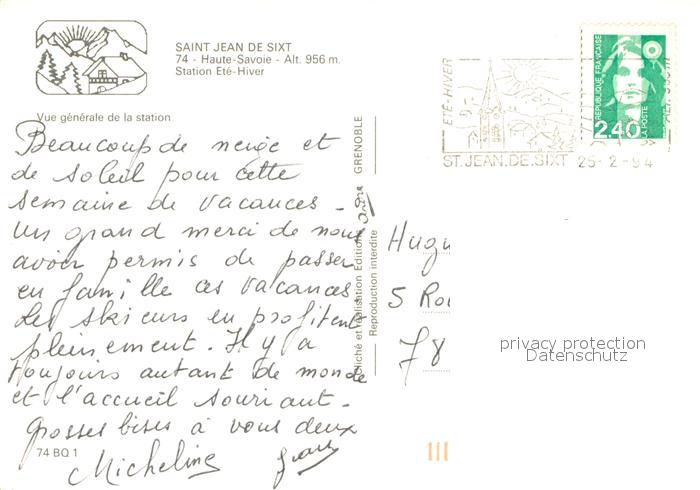 SAINT JEAN DE SIXT
74 - Haute-Savoie - Alt. 956 m.
Station Eté-Hiver
Vue générale de la station
Beaucoup de neige et
de soleil pour cette
semaine de vacances -
Un grand merci de nous
avoir permis de passer
en famille ces vacances
Les skieurs en profitent
pleinement. Il y a
toujours autant de monde
et l'accueil souriant -
Grosses bises à vous deux
Micheline
74 BQ 1
Cliché et réalisation Editions André GRENOBLE
Reproduction interdite
ETÉ-HIVER
ST. JEAN. DE. SIXT 25-2-94
REPUBLIQUE FRANÇAISE
2,40
LA POSTE
Hugu
5 Rou
78
privacy protection
Datenschutz